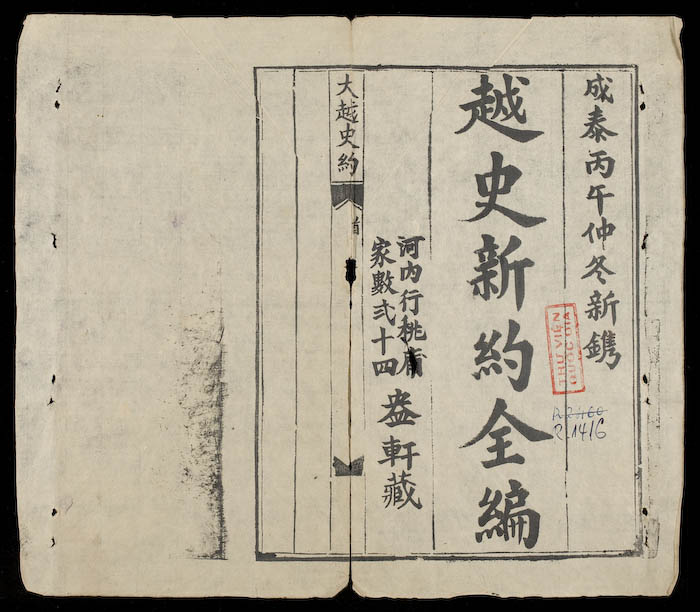 成泰丙午仲冬新鐫
越史新約全編
河内行桃庯
家數弍十四
盎軒藏
大越史約
首
THU VIEN
QUOC GIA
R.1416